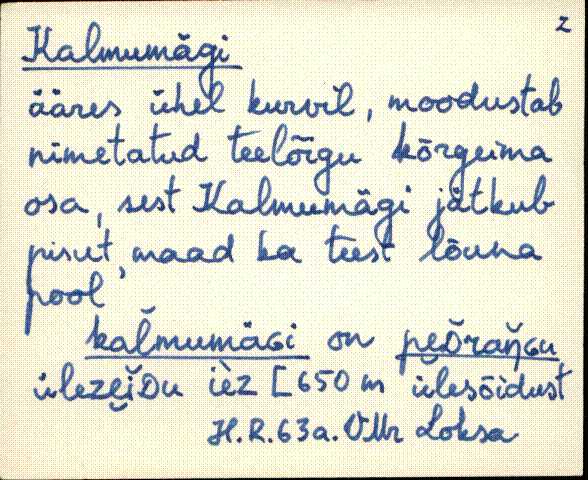 2
Kalmumägi
ääres ühel kurvil, moodustab
nimetatud teelõigu kõrgeima
osa, sest Kalmumägi jätkub
pisut maad ka teest lõuna
pool
kaľmumäɢi on
ülezɐi̯ᴅu ièz [650 m ülesõidust
H.R. 63a. VMr Loksa